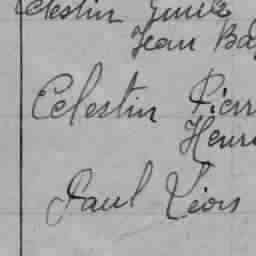 Celestin Emile
Jean Ba
Celestin Pierr
Henri
Paul Léon